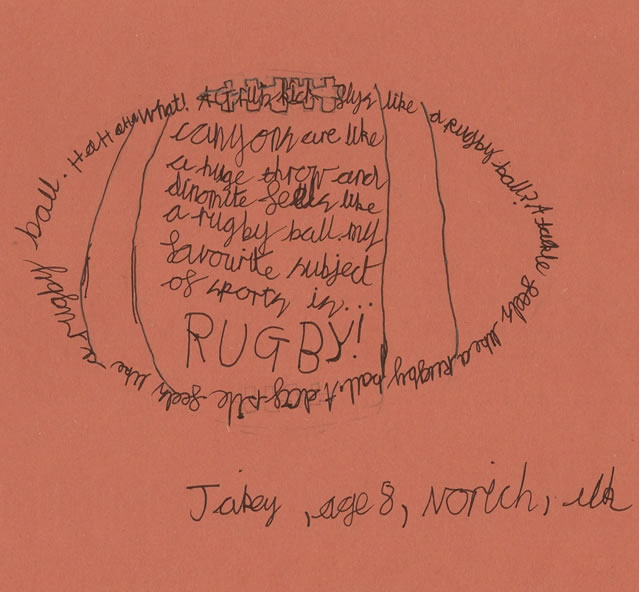 HaHaHa what! A Grub kick flys like a rugby ball? A tackle feels like a Rugby ball. A dog-pile feels like a rugby ball.
canyons are like
a huge throw and
dinomite feels like
a rugby ball. my
favourite subject
of sports is...
RUGBY!
Jakey, age 8, Norich, uk